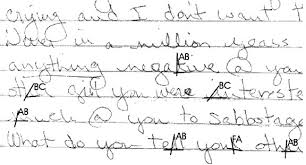 crying and I don't want t
Never in a million years
anything negative @ you
still and you were intereste
much @ you to sabbotage
What do you tell you oth
AB
BC
BC
AB
AB
FA
AB